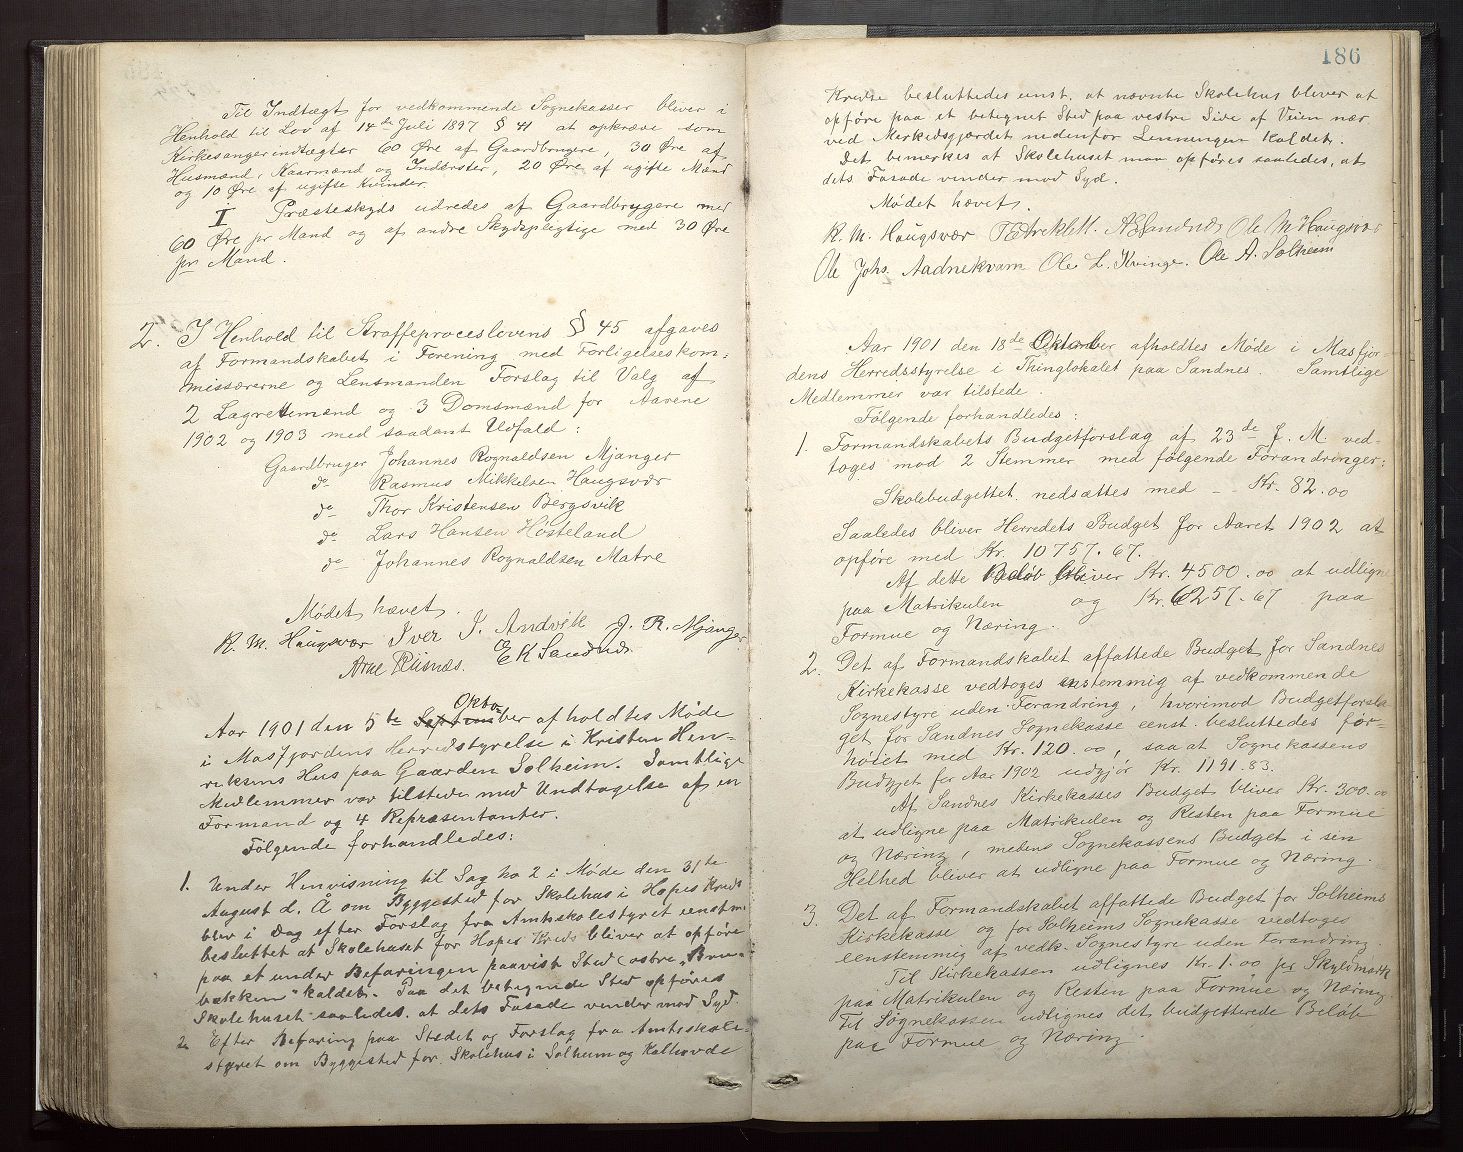 Til Indtægt for vedkommende Sognekasser bliver i
Henhold til Lov af 14de Juli 1897 § 41 at opkræve som
Kirkesangerindtægter 60 Øre af Gaardbrugere 30 Øre af
Husmænd, Kaarmænd og Inderster, 20 Øre af ugifte Mænd
og 10 Øre af ugifte Kvinder.
I Præsteskyds udredes af Gaardbrugere med
60 Øre pr Mand og af andre Skydspligtige med 30 Øre
pr Mand.
2. I Henhold til Straffeproceslovens § 45 afgaves
af Formandskabet i Forening med Forligelseskom-
missærerne og Lensmanden Forslag til Valg af
2 Lagrettemænd og 3 Domsmænd for Aarene
1902 og 1903 med saadant Udfald:
Gaardbruger Johannes Rognaldsen Mjanger
do Rasmus Mikkelsen Haugsvær
do Thor Kristensen Bergsvik
do Lars Hansen Hosteland
do Johannes Rognaldsen Matre
Mødet hævet.
R. M. Haugsvær Iver I. Andvik J. R. Mjanger
Arne Risnæs. E K Sandnæs
Okto
Aar 1901 den 5te September afholdtes Møde
i Masfjordens Herredstyrelse i Kristen Hen-
riksens Hus paa Gaarden Solheim. Samtlige
Medlemmer var tilstede med Undtagelse af en
Formand og 4 Repræsentanter.
Følgende forhandledes:
1. Under Henvisning til Sag no 2 i Møde den 31te
August d. Å om Byggested for Skolehus i Hopes Kreds
blev i Dag efter Forslag fra Amtskolestyret eenstm.
besluttet at Skolehuset for Hopes Kreds bliver at opføre
paa et under Befaringen paavist Sted (østre "Bru-
bækken" kaldet. Paa det betegnede Sted opføres
Skolehuset saaledes. at dets Fasade vender mod Syd.
2. Efter Befaring paa Stedet og Forslag fra Amtsskole-
styret om Byggested for Skolehus i Solheim og Kalhovde
186
Kredse besluttedes enst. at nævnte Skolehus bliver at
opføre paa et betegnet Sted paa vestre Side af Veien nær
ved Merkesgjærdet nedenfor Lenningen kaldet.
Det bemerkes at Skolehuset maa opføres saaledes, at
dets Fasade vender mod Syd.
Mødet hævet.
R. M. Haugsvær ASSandnæs Ole M Haugsvær
Ole Johs. Aadnekvam Ole L. Kvinge. Ole A. Solheim
Aar 1901 den 18de Oktober afholdtes Møde i Masfjor-
dens Herredsstyrelse i Thinglokalet paa Sandnes. Samtlige
Medlemmer var tilstede.
Følgende forhandledes:
1. Formandskabets Budgetforslag af 23de f. M. ved-
toges mod 2 Stemmer med følgende Forandringer:
Skolebudgettet nedsættes med - Kr. 82.00
Saaledes bliver Herredets Budget for Aaret 1902 at
opføre med Kr. 10757.67.
Af dette Beløb bliver Kr. 4500.00 at udligne
paa Matrikulen og Kr. 6257.67 paa
Formue og Næring.
2. Det af Formandskabet affattede Budget for Sandnes
Kirkekasse vedtoges enstemmig af vedkommende
Sognestyre uden Forandring, hvorimod Budgetforsla
get for Sandnes Sognekasse eenst. besluttedes for-
høiet med Kr. 120.00, saa at Sognekassens
Budget for Aar 1902 udgjør Kr. 1191.83.
Af Sandnes Kirkekasses Budget bliver Kr. 300.00
at udligne paa Matrikulen og Resten paa Formue
og Næring, medens Sognekassens Budget i sin
Helhed bliver at udligne paa Formue og Næring.
3. Det af Formandskabet affattede Budget for Solheims
Kirkekasse og for Solheims Sognekasse vedtoges
eenstemmig af vedk. Sognestyre uden Forandring.
Til Kirkekassen udlignes Kr. 1.00 pr Skyldmark
paa Matrikulen og Resten paa Formue og Næring.
Til Sognekassen udlignes det budgetterede Beløb
paa Formue og Næring.